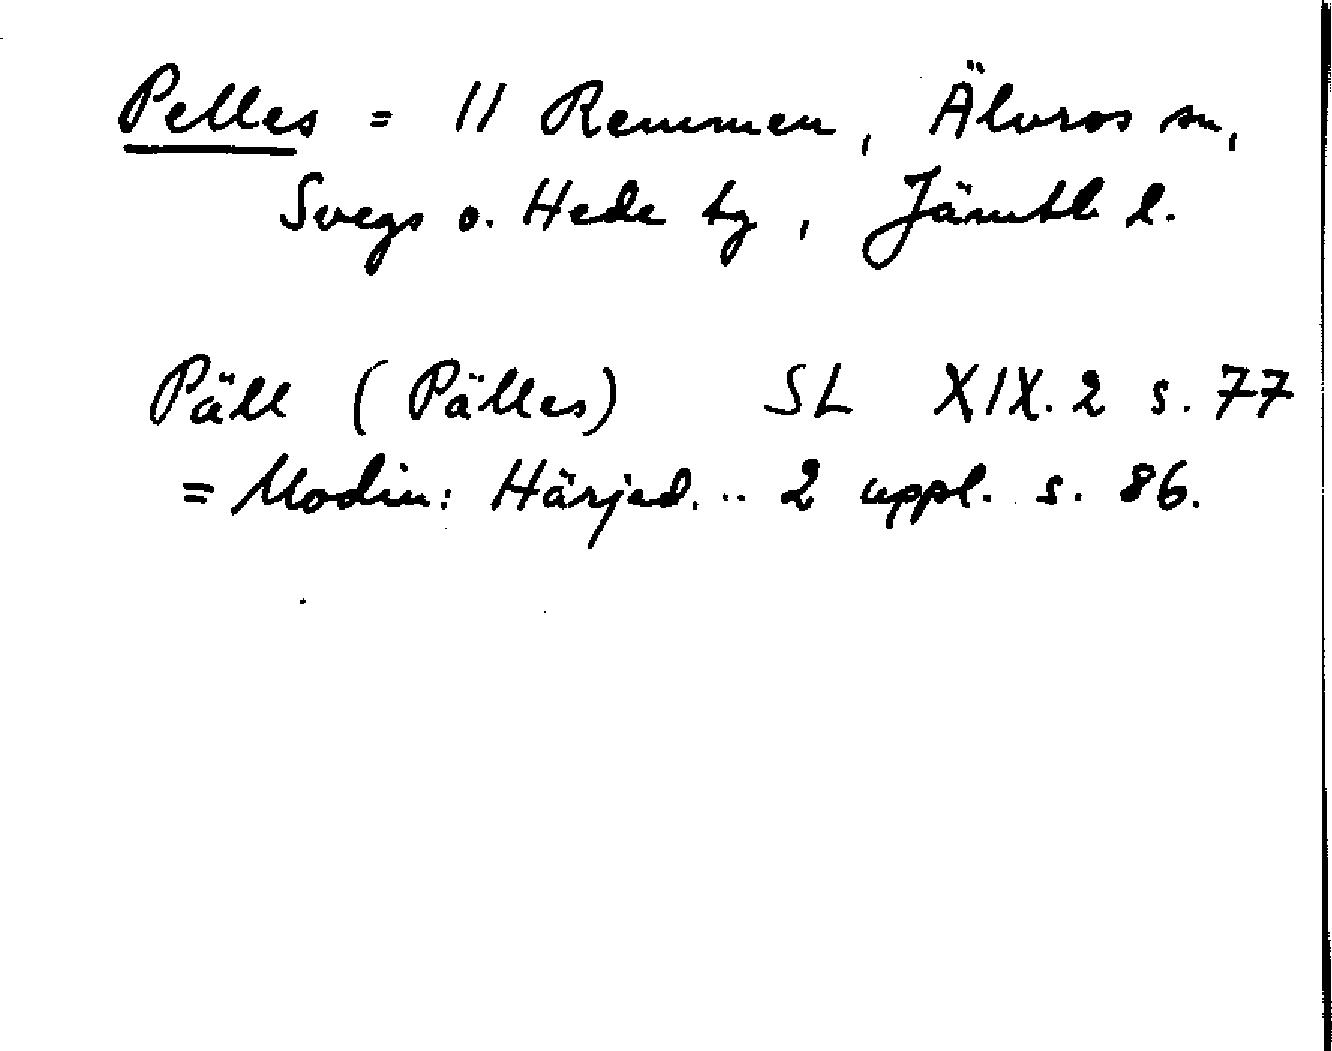 Pelles = 11 Remmen, Älvros sn,
Svegs o. Hede tg, Jämtl. l.
Päll (Pälles) SL XIX. 2 s. 77
= Modin: Härjed. .. 2 uppl. s. 86.